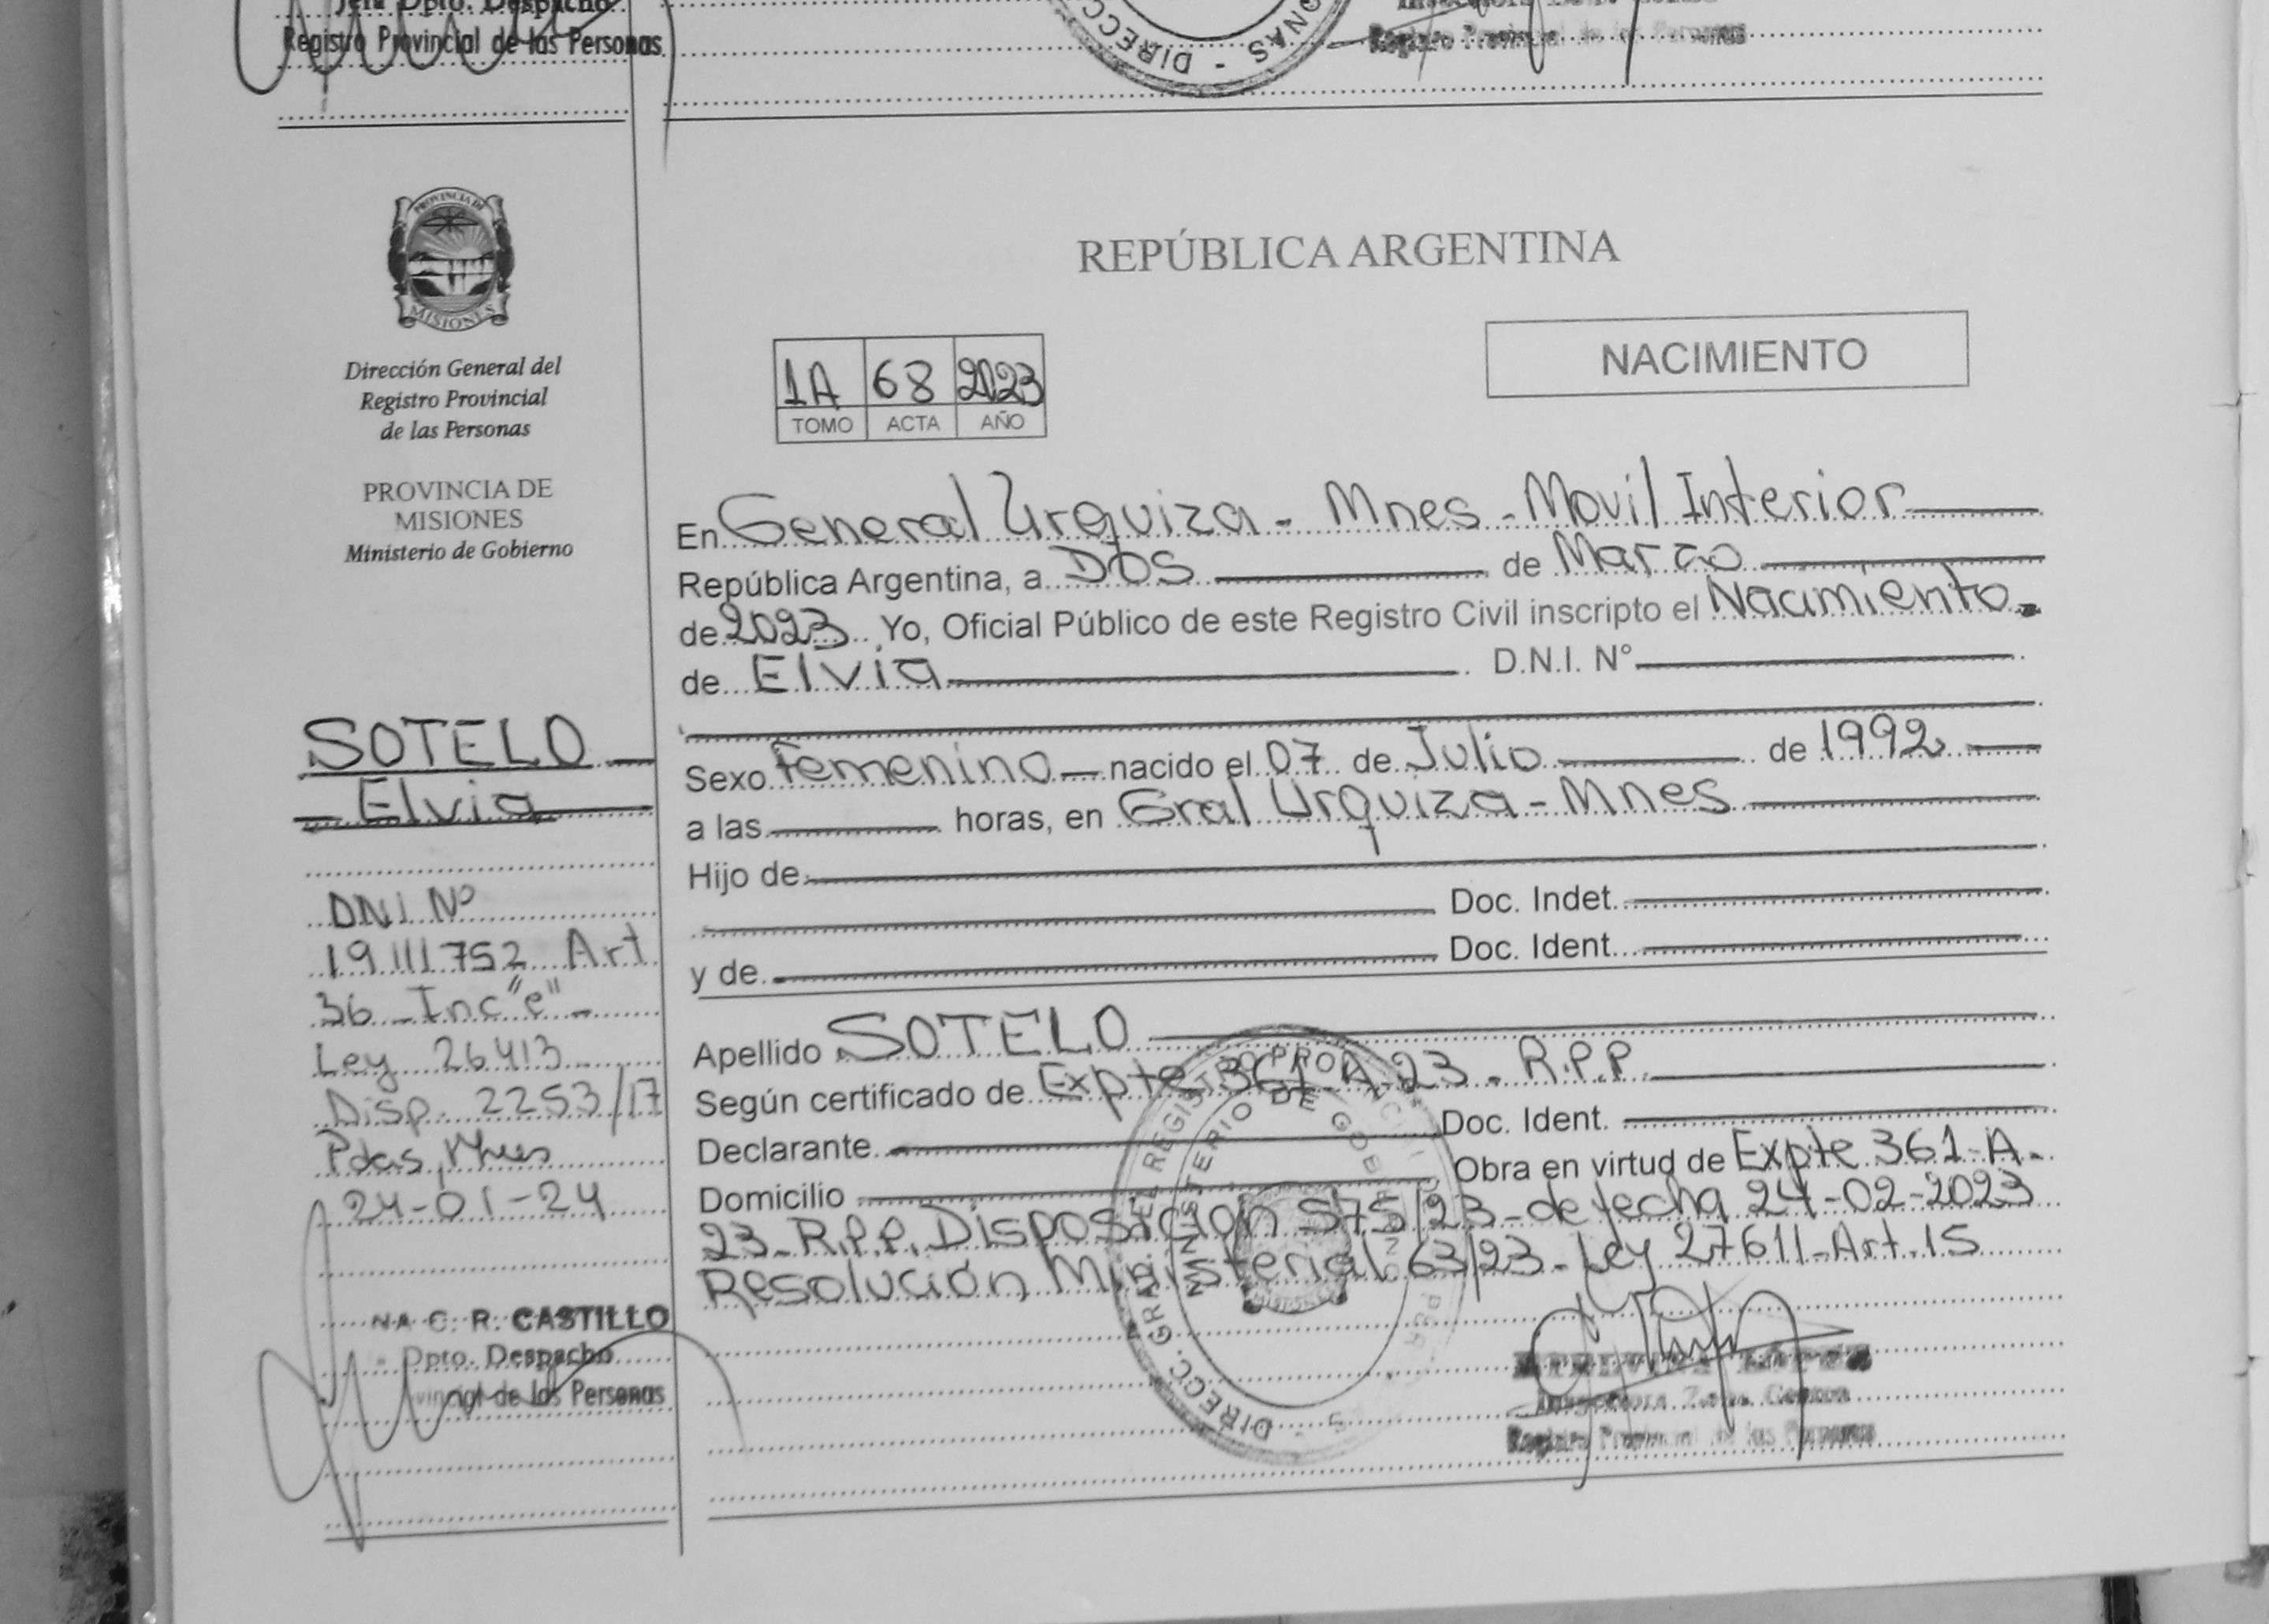 Jefa Dpto. Despacho
Registro Provincial de las Personas
DIRECC
ONAS -
Registro Provincial de las Personas
PROVINCIA DE
MISIONES
Dirección General del
Registro Provincial
de las Personas
PROVINCIA DE
MISIONES
Ministerio de Gobierno
SOTELO
Elvia
DNI Nº
19.111.752 Art
36 - Inc "e" -
Ley 26413
Disp. 2253/17
Pdas, Mnes
24-01-24
NA C. R. CASTILLO
Dpto. Despacho
vincial de las Personas
REPÚBLICA ARGENTINA
NACIMIENTO
1A 68 2023
TOMO ACTA AÑO
En General Urquiza - Mnes - Movil Interior
República Argentina, a Dos de Marzo
de 2023 Yo, Oficial Público de este Registro Civil inscripto el Nacimiento.
de Elvia D.N.I. N°
Sexo Femenino nacido el 07 de Julio de 1992
a las horas, en Gral Urquiza - Mnes
Hijo de
Doc. Indet.
y de Doc. Ident.
Apellido SOTELO
Según certificado de Expte 361-A-23 - R.P.P.
Declarante Doc. Ident.
Domicilio Obra en virtud de Expte 361-A-
23-R.P.P. Disposición 575/23-de fecha 24-02-2023
Resolución Ministerial 63/23-Ley 27611-Art.15
DIRECC. GRAL. DEL REGISTRO PROVINCIAL
MINISTERIO DE GOBIERNO
MISIONES
Inspectora Zona Centro
Registro Provincial de las Personas